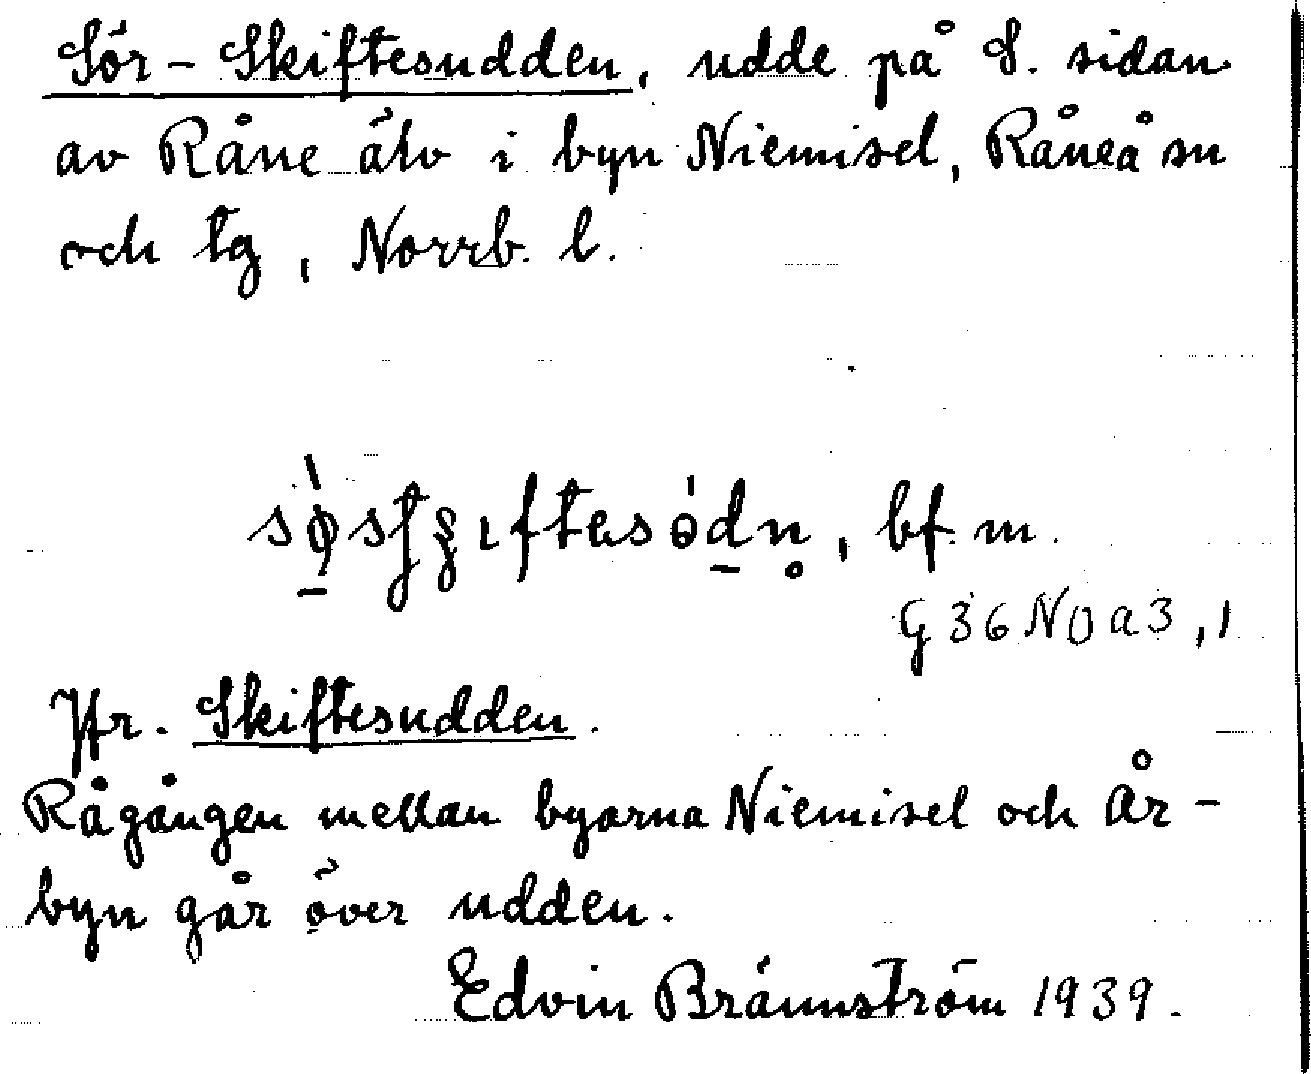 Sör-Skiftesudden, udde på S. sidan
av Råne älv i byn Niemisel, Råneå sn
och tg, Norrb. l.
bf. m.
G 36 N 0 a 3, 1
Jfr. Skiftesudden.
Rågången mellan byarna Niemisel och År-
byn går över udden.
Edvin Brännström 1939.